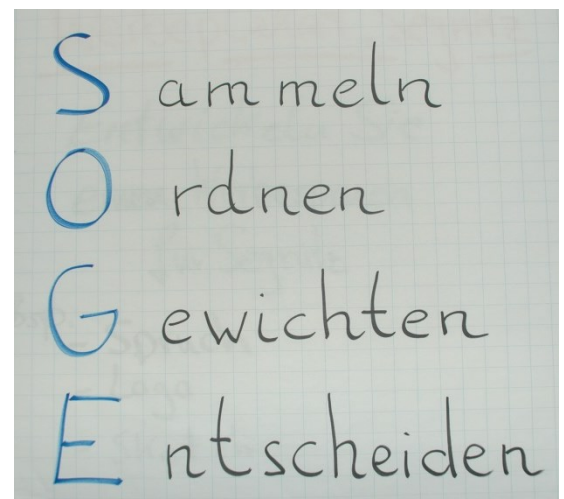 Sammeln
Ordnen
Gewichten
Entscheiden